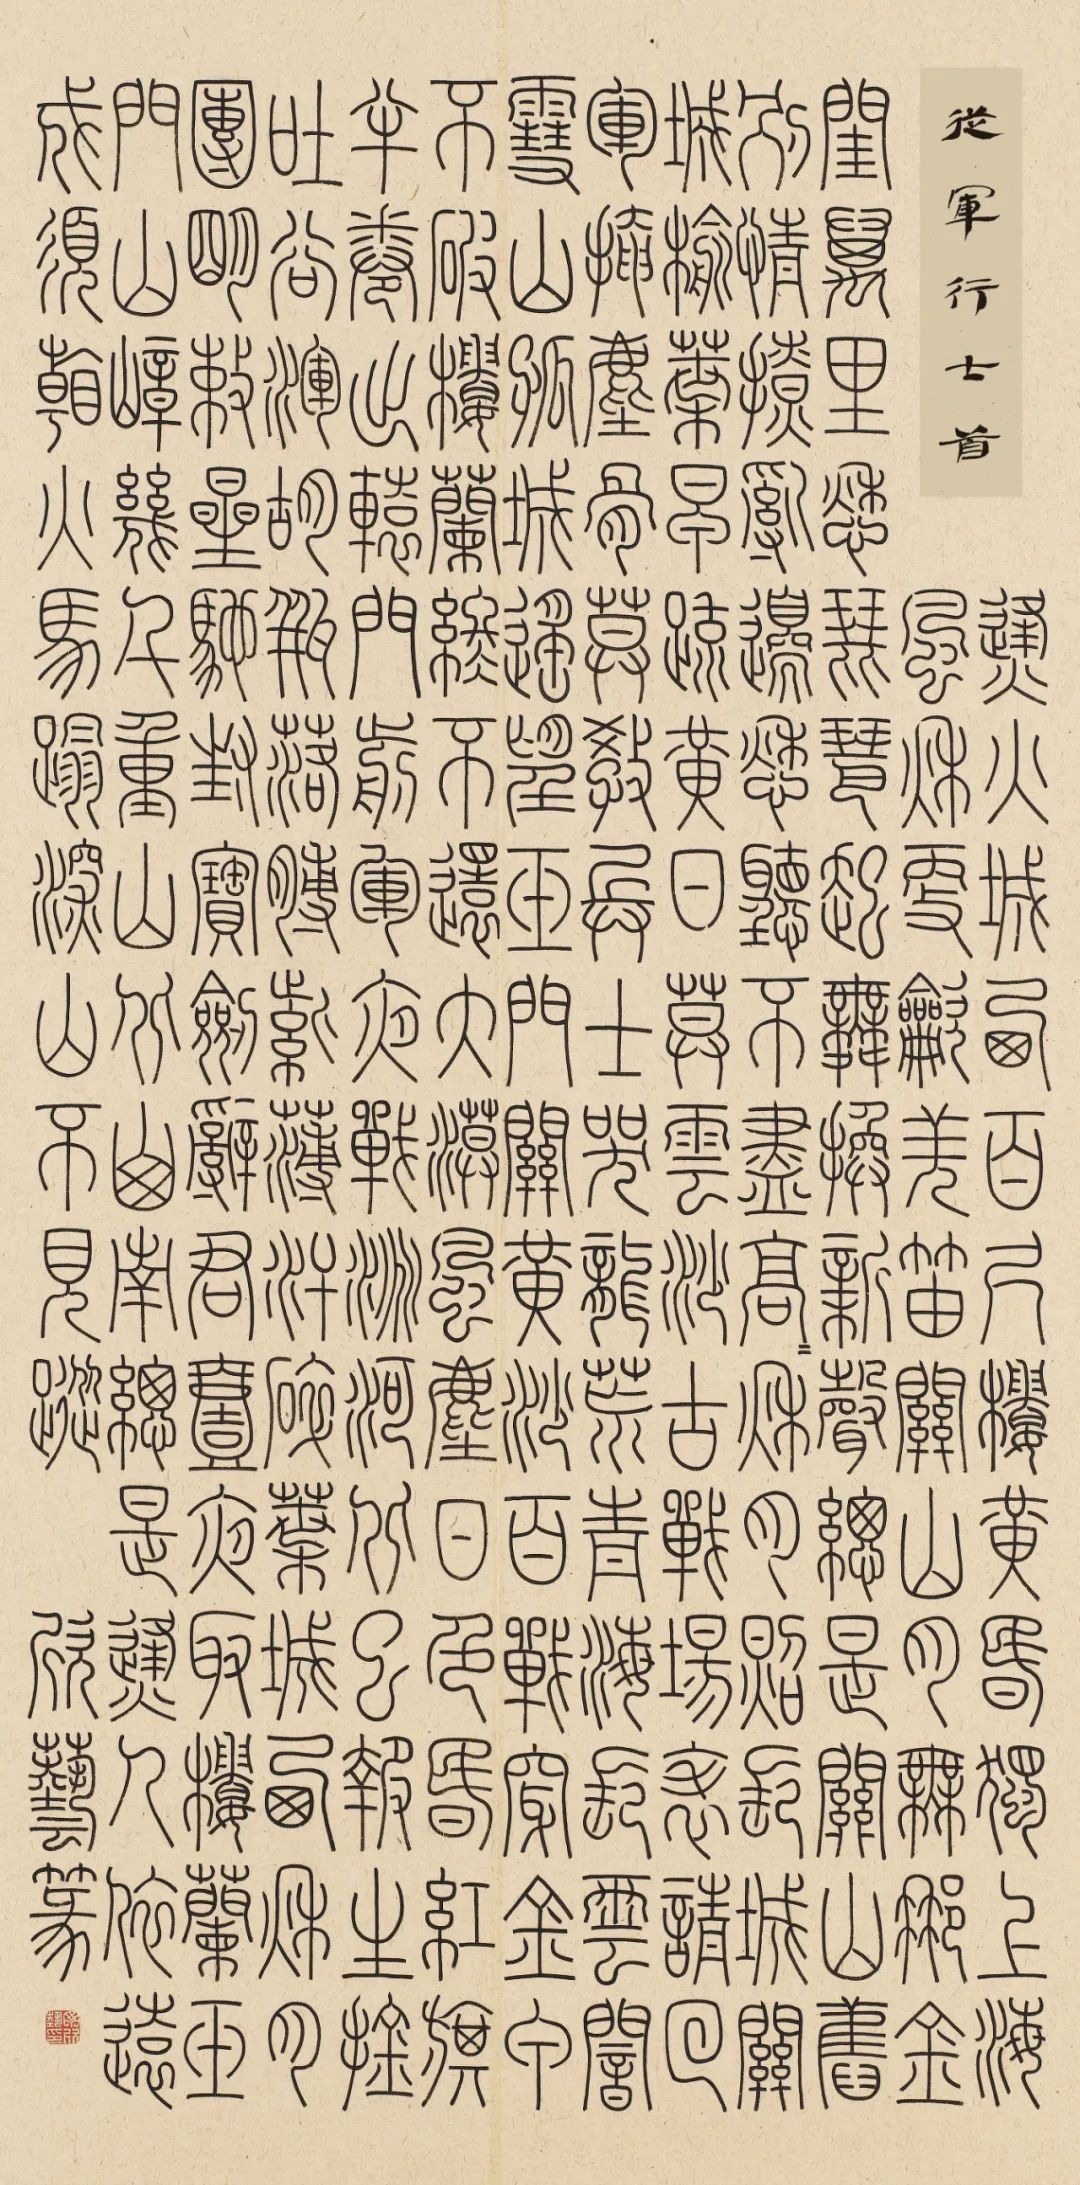 從軍行七首
烽火城西百尺樓黃昏獨上海
風秋更龡羌笛關山月無那金
閨萬里愁琵琶起舞換新聲總是關山舊
別情撩亂邊愁聽不盡高〻秋月照長城關
城榆葉早疏黃日莫雲沙古戰場表請回
軍掩塵骨莫教兵士哭龍荒青海長雲闇
雪山孤城遙望玉門關黃沙百戰穿金甲
不破樓蘭終不還大漠風塵日色昏紅旗
半卷出轅門前軍夜戰洮河北已報生擒
吐谷渾胡瓶落膊紫薄汗碎葉城西秋月
團明敕星馳封寶劍辭君壹夜取樓蘭玉
門山嶂幾千重山北山南總是烽人依遠
戍須看火馬蹋深山不見蹤 欣藝篆